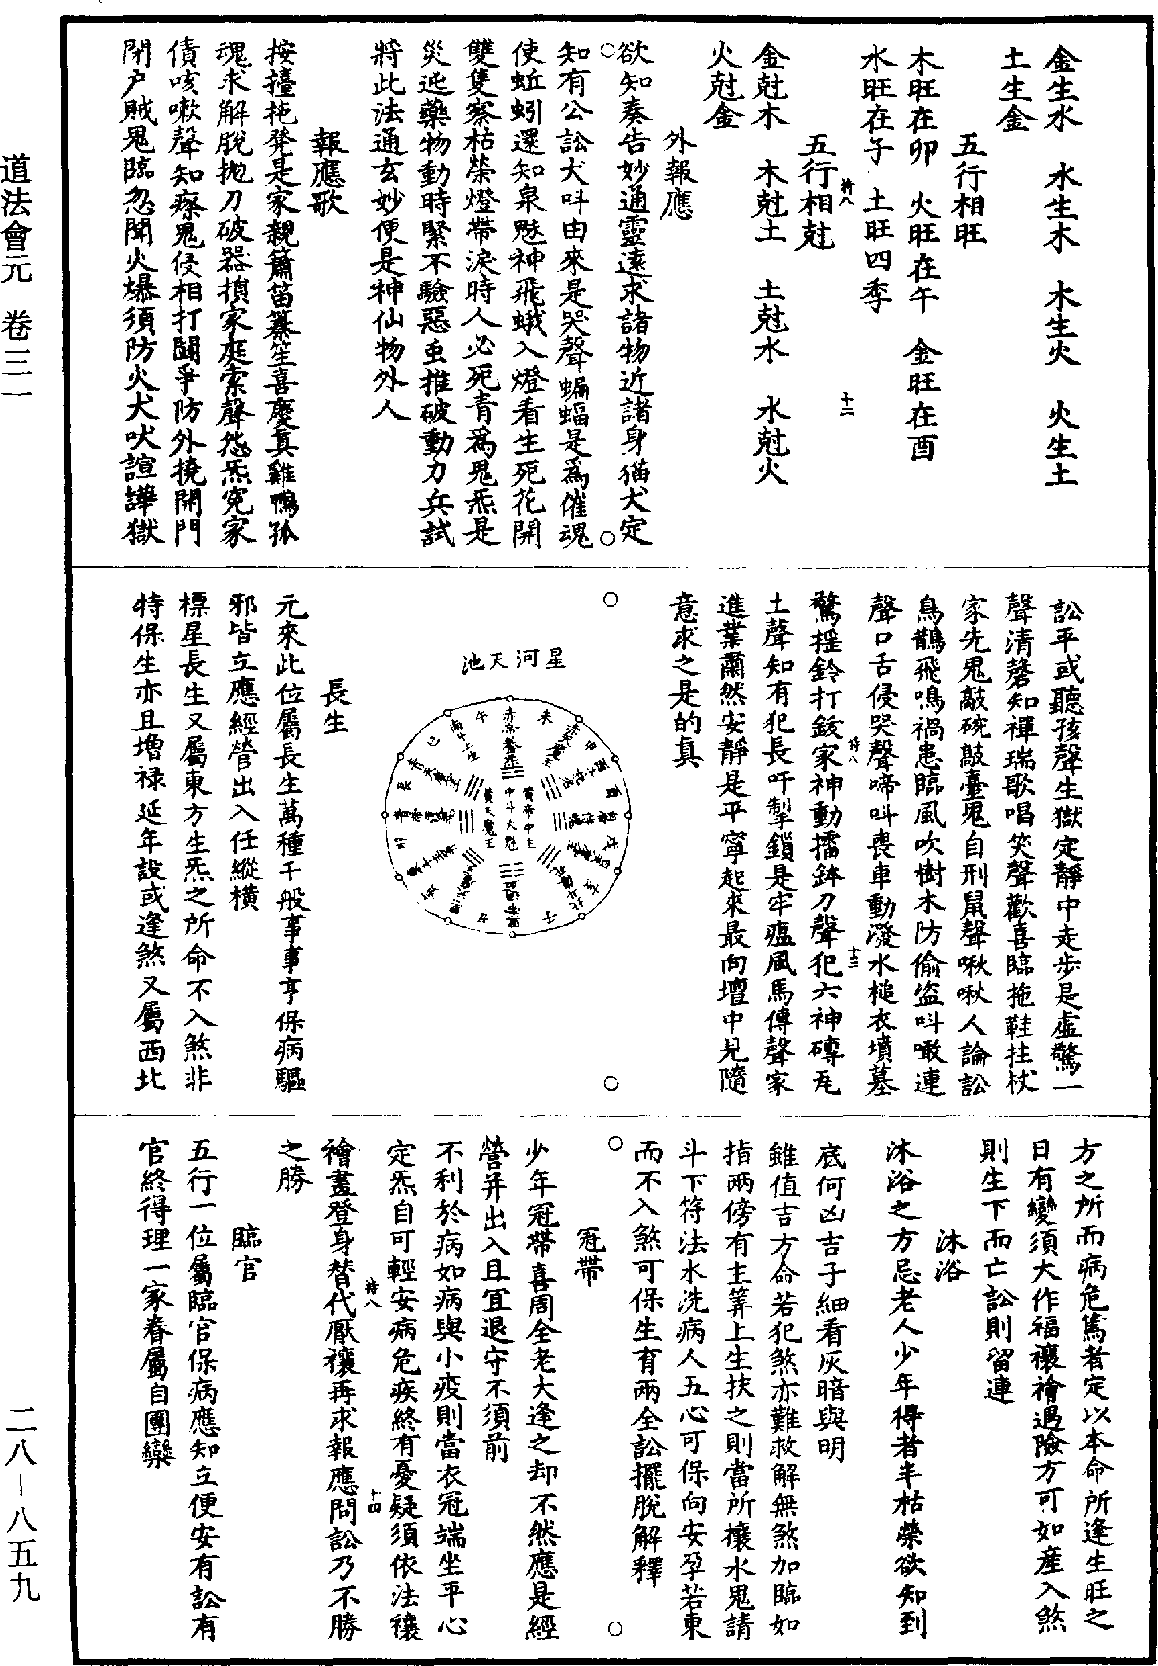 金生水　水生木　木生火　火生土
土生金
五行相旺
木旺在卯　火旺在午　金旺在酉
水旺在子　土旺四季
五行相尅
金尅木　木尅土　土尅水　水尅火
火尅金
外報應
欲知奏告妙通靈遠求諸物近諸身猫犬定
知有公訟犬呌由來是哭聲蝙蝠是爲催魂
使蚯蚓還知泉魅神飛蛾入燈看生死花開
雙隻察枯榮燈帶淚時人必死青爲鬼炁是
災迍藥物動時緊不驗惡虫推破動刀兵試
將此法通玄妙便是神仙物外人
報應歌
按擡拖凳是家親簫笛纂笙喜慶真雞鴨孤
魂求解脫抛刀破器損家庭索聲怨炁寃家
債咳嗽聲知瘵鬼侵相打鬭爭防外撓開門
閉户賊鬼臨忽聞火爆須防火犬吠諠譁獄
訟平或聽孩聲生獄定靜中走步是虛驚一
聲清磬知禪瑞歌唱笑聲歡喜臨拖鞋拄杖
家先鬼敲碗敲臺鬼自刑鼠聲啾啾人論訟
鳥鵲飛鳴禍患臨風吹樹木防偷盜呌噉連
聲口舌侵哭聲啼呌喪車動潑水槌衣墳墓
驚摇鈴打鈸家神動擂鉢刀聲犯六神磚瓦
土聲知有犯長吁掣鎖是牢瘟風馬傳聲家
進業肅然安靜是平寧起來最向壇中見隨
意求之是的真
星河天池
長生
元來此位屬長生萬種千般事事亨保病驅
邪皆立應經營出入任縱横
標星長生又屬東方生炁之所命不入煞非
特保生亦且增禄延年設或逢煞又屬西北
方之所而病危篤者定以本命所逢生旺之
日有變須大作福禳禬過險方可如産入煞
則生下而亡訟則留連
沐浴
沐浴之方忌老人少年得者半枯榮欲知到
底何凶吉子細看灰暗與明
雖值吉方命若犯煞亦難救解無煞加臨如
指兩傍有主筭上生扶之則當所攘水鬼請
斗下符法水洗病人五心可保向安孕若東
而不入煞可保生有兩全訟擺脫解釋
冠帶
少年冠帶喜周全老大逢之却不然應是經
營并出入且宜退守不須前
不利於病如病與小疫則當衣冠端坐平心
定炁自可輕安病危疾終有憂疑須依法禳
禬畫登身替代厭禳再求報應問訟乃不勝
之勝
臨官
五行一位屬臨官保病應知立便安有訟有
官終得理一家眷屬自團欒
道法會元　卷三一
二八—八五九